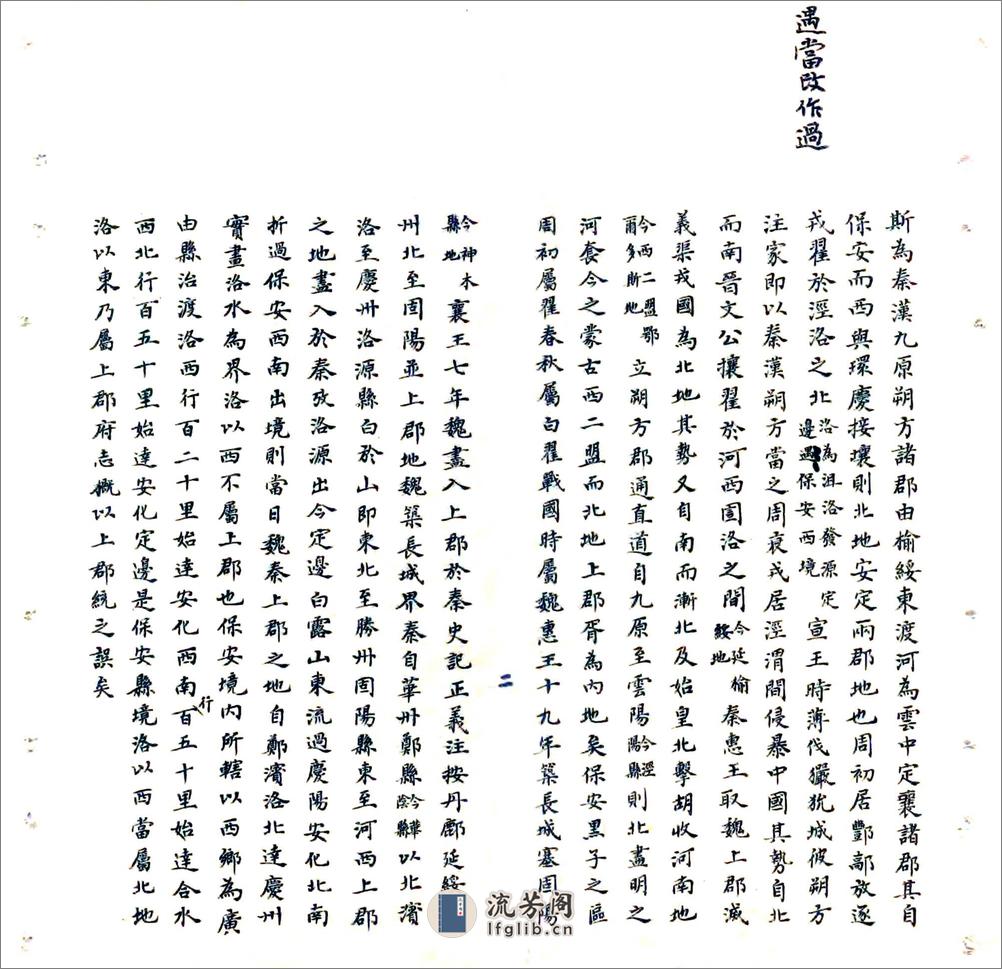 遇當改作過
斯為秦漢九原朔方諸郡由榆綏東渡河為雲中定襄諸郡其自
保安而西與環慶接壤則北地安定兩郡地也周初居酆鄗放逐
戎翟於涇洛之北洛為沮洛發源定邊遇保安西境宣王時薄伐玁狁城彼朔方
注家即以秦漢朔方當之周衰戎居涇渭間侵暴中國其勢自北
而南晉文公攘翟於河西圁洛之間今延榆綏地秦惠王取魏上郡滅
義渠戎國為北地其勢又自南而漸北及始皇北擊胡收河南地
今西二盟鄂爾多斯地立朔方郡通直道自九原至雲陽今涇陽縣則北盡明之
河套今之蒙古西二盟而北地上郡胥為內地矣保安黑子之區
周初屬翟春秋屬白翟戰國時屬魏惠王十九年築長城塞固陽
二
今神木縣地襄王七年魏盡入上郡於秦史記正義注按丹鄜延綏
州北至固陽並上郡地魏築長城界秦自華州鄭縣今華陰縣以北濱
洛至慶州洛源縣白於山即東北至勝州固陽縣東至河西上郡
之地盡入於秦攷洛源出今定邊白露山東流過慶陽安化北南
折過保安西南出境則當日魏秦上郡之地自鄭濱洛北達慶州
實畫洛水為界洛以西不屬上郡也保安境內所轄以西鄉為廣
由縣治渡洛西行百二十里始達安化西南行百五十里始達合水
西北行百五十里始達安化定邊是保安縣境洛以西當屬北地
洛以東乃屬上郡府志概以上郡統之誤矣
流芳阁
lfglib.cn